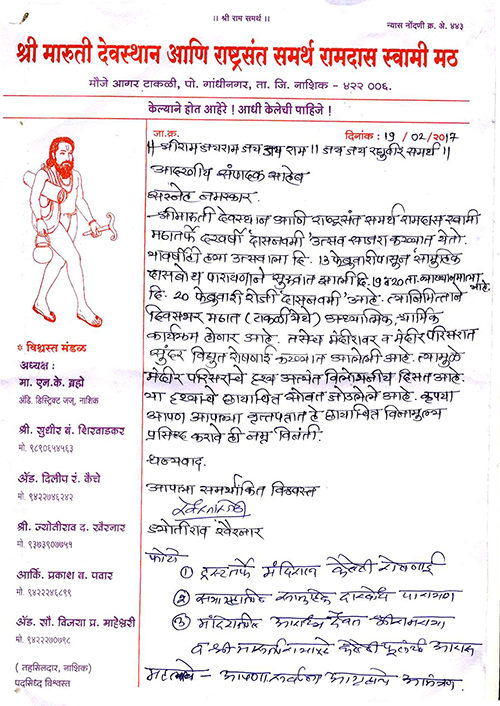 ॥ श्री राम समर्थ ॥
न्यास नोंदणी क्र. अे. ४४३
श्री मारुती देवस्थान आणि राष्ट्रसंत समर्थ रामदास स्वामी मठ
मौजे आगर टाकळी, पो. गांधीनगर, ता. जि. नाशिक - ४२२ ००६.
केल्याने होत आहेरे ! आधी केलेची पाहिजे !
जा.क्र. दिनांक : 19 / 02 / 2017
॥ श्रीराम जयराम जय जय राम ॥ जय जय रघुवीर समर्थ ॥
आदरणीय संपादक साहेब
सस्नेह नमस्कार.
श्रीमारुती देवस्थान आणि राष्ट्रसंत समर्थ रामदास स्वामी
मठातर्फे दरवर्षी 'दासनवमी' उत्सव साजरा करण्यात येतो.
यावर्षीही ह्या उत्सवाला दि. 13 फेब्रुवारीपासून सामुहिक
दासबोध पारायणाने सुरुवात झाली दि. 19 व 20 ता. व्याख्यानमाला आहे.
दि. 20 फेब्रुवारी रोजी 'दासनवमी' आहे. त्यानिमित्ताने
दिवसभर मठात (टाकळी येथे) अध्यात्मिक, धार्मिक
कार्यक्रम होणार आहे. तसेच मंदीरावर व मंदीर परिसरात
सुंदर विद्युत रोषणाई करण्यात आलेली आहे. त्यामुळे
मंदीर परिसराचे दृश्य अत्यंत विलोभनीय दिसत आहे.
या दृश्याचे छायाचित्र सोबत जोडलेले आहे. कृपया
आपण आपल्या वृत्तपत्रात हे छायाचित्र विनामुल्य
प्रसिध्द करावे ही नम्र विनंती.
धन्यवाद.
आपला समर्थांकित विश्वस्त
ज्योतीराव खैरनार
फोटो
① ट्रस्टतर्फे मंदिरास केलेली रोषणाई
② सामुहिक दासबोध पारायण
③ मंदिरातील आराध्य दैवत श्रीरामराया
व श्री मारुतीरायाचे केलेली फुलांची आरास
महत्वाचे - आपणा सर्वांना आग्रहाचे आमंत्रण.
* विश्वस्त मंडळ
अध्यक्ष :
मा. एन.के. ब्रह्मे
ॲडि. डिस्ट्रिक्ट जज्, नाशिक
श्री. सुधीर बं. शिरवाडकर
मो. ९८९०६५४५६३
ॲड. दिलीप रं. कैचे
मो. ९४२२७४६२४२
श्री. ज्योतीराव द. खैरनार
मो. ९३७३९०७७५१
आर्कि. प्रकाश व. पवार
मो. ९४२२२४६८९९
ॲड. सौ. विजया प्र. माहेश्वरी
मो. ९४२२२७०७९८
( तहसिलदार, नाशिक )
पदसिध्द विश्वस्त